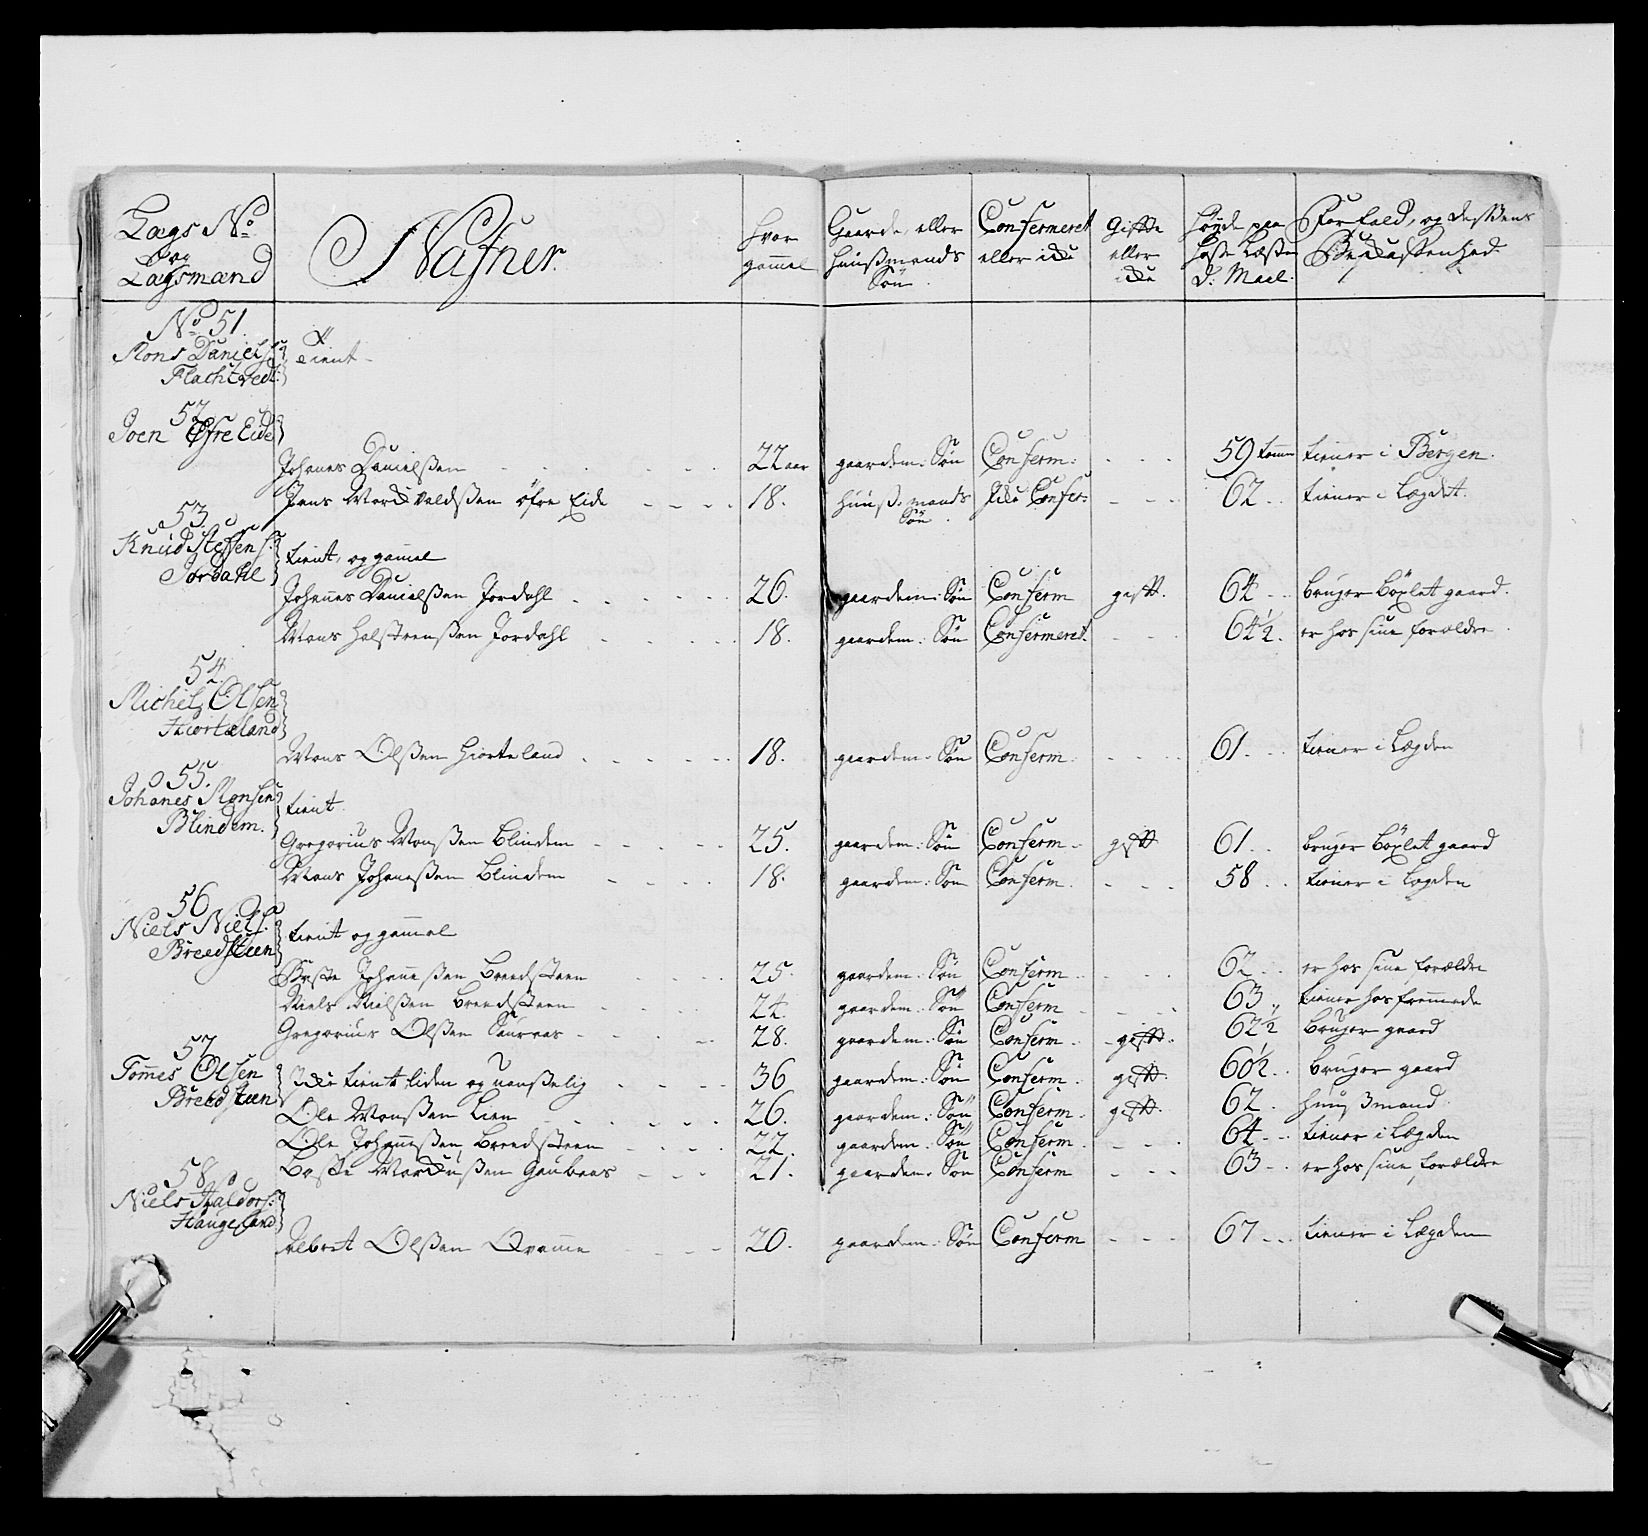 Lags No og Lagsmænd | Nafner. | Hvor gammel | Gaarde eller Huusmands Søn. | Confermeret eller icke | Gifte eller icke | Høyde paa
No 51.
Mons Daniels: tient
Flachtvedt
52
Joen Øfre Eide
Johanes Danielsen 22 aar gaardm: Søn Conferm: 59 tomm tiener i Bergen.
Jens øfre Eide 18. Huus-mands Søn. Icke Confer: 62 tiener i Lægdet.
53.
Knud Steffens: tient, og gamel
Jordahl
Johannes Danielsen Jordahl 26. gaardem: Søn Conferm gift. 64 bruger böxlet gaard.
Mons Halsteensen Jordahl 18. gaardem: Søn Confermeret. 64½. er hos sine forældre
54.
Michel Olsen
Hiorteland
Mons Olsen Hiorteland 18. gaardem: Søn Conferm. 61. tiener i Lægden
55.
Johanes Monsen tient
Blindem.
Gregorius Monsen Blindem 25. gaardem: Søn Conferm gift 61. bruger böxlet gaard
Mons Johanesen Blindem 18. gaardem: Søn Conferm. 58 tiener i Lægden
56
Niels Niels: tient og gammel
Breedsteen
Johannesen Breedsteen 25. gaardem: Søn Conferm 62 er hos sine forældre
Niels Nielsen Breedsteen 24. gaardem: Søn Conferm 63 tiener hos fremmede
Gregorius Olsen 28. gaardem: Søn Conferm gift. 62½ Bruger gaard
57
Tommes Olsen Icke tient liden og uanselig 36 gaardem: Søn Conferm gift. 60½. bruger gaard
Breedsteen
Ole Monsen Lien 26. gaardem: Søn Conferm gift. 62 huusmand
Ole Johannesen Breedsteen 22. gaardem: Søn Conferm 64 tiener i Lægden
21. gaardem: Søn Conferm 63 er hos sine forældre
58
Niels Haldors:
Haugeland
Albret Olsen Qvamme 20. gaardem: Søn Conferm 67 tiener i Lægden